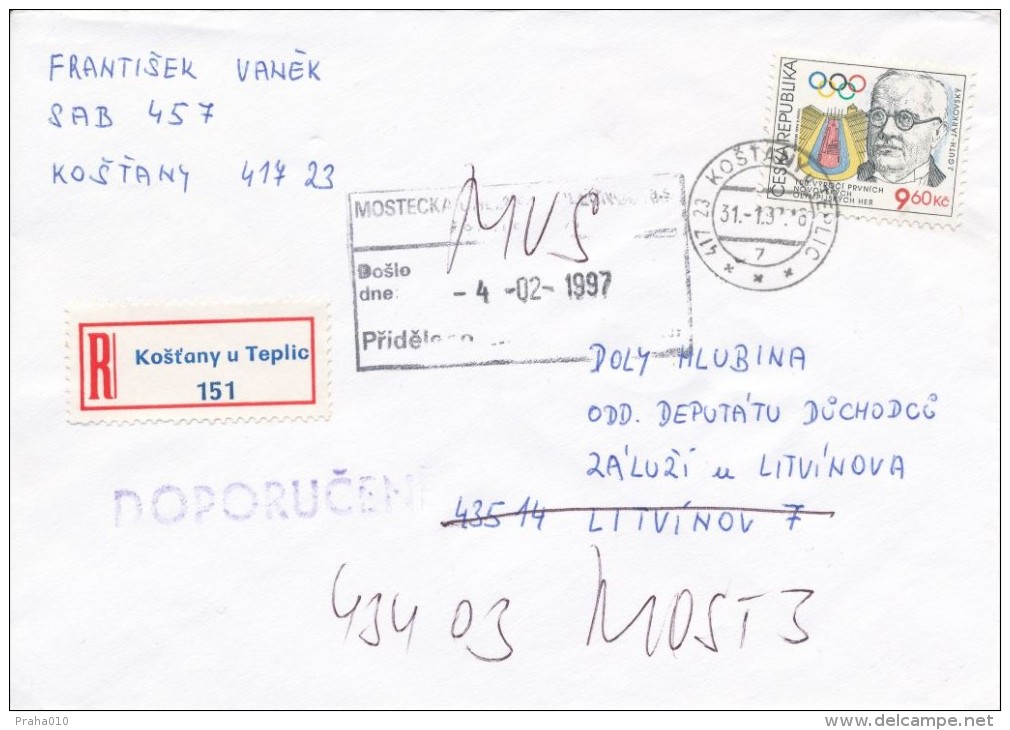 FRANTIŠEK VANĚK
SAB 457
KOŠŤANY 417 23
ČESKÁ REPUBLIKA
J. GUTH-JARKOVSKÝ
VÝROČÍ PRVNÍCH
NOVODOBÝCH
OLYMPIJSKÝCH HER
9,60 Kč
417 23 KOŠŤANY U TEPLIC
31.-1.97
7
MOSTECKÁ
MUS
Došlo
dne:
- 4 -02- 1997
R
Košťany u Teplic
151
DOPORUČENĚ
DOLY HLUBINA
ODD. DEPUTÁTU DŮCHODCŮ
ZÁLUŽÍ u LITVÍNOVA
435 14 LITVÍNOV 7
434 03 MOST 3
Praha010
www.delcampe.net